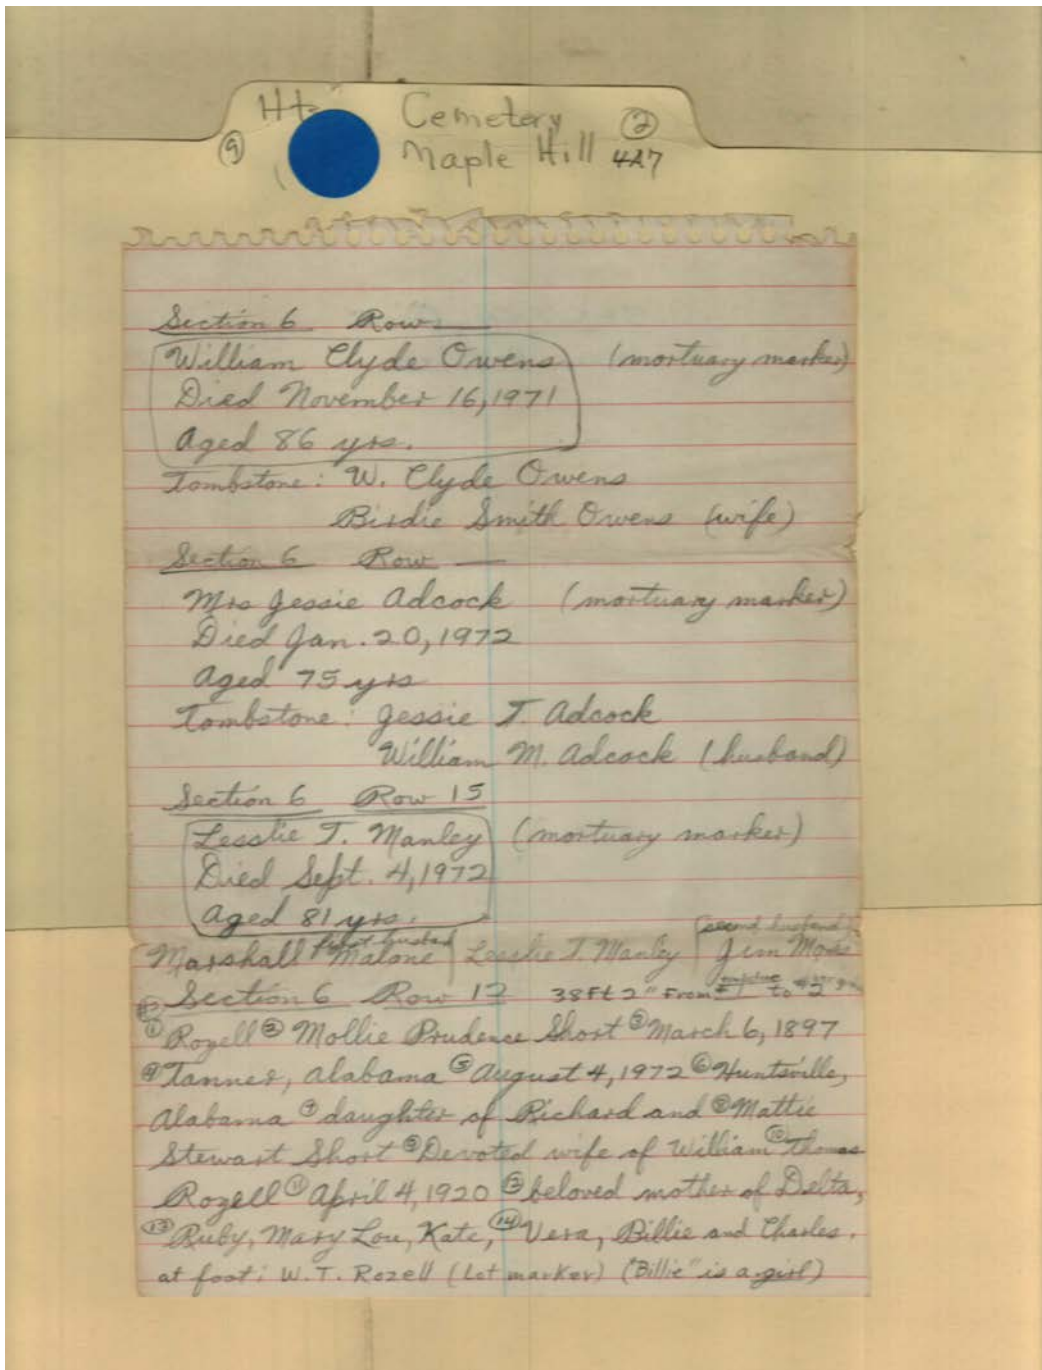 Cemetery ②
⑨ Maple Hill 4A7
Section 6 Row
William Clyde Owens (mortuary marker)
Died November 16, 1971
Aged 86 yrs.
Tombstone: W. Clyde Owens
Birdie Smith Owens (wife)
Section 6 Row
Mrs Jessie Adcock (mortuary marker)
Died Jan. 20, 1972
Aged 75 yrs
Tombstone: Jessie T. Adcock
William M. Adcock (husband)
Section 6 Row 15
Lesslie T. Manley (mortuary marker)
Died Sept. 4, 1972
Aged 81 yrs.
first husband (second husband)
Marshall Malone Lesslie T Manley Jim
Section 6 Row 12 38Ft 2" From #1 to #2
① Rozell ② Mollie Prudence Short ③ March 6, 1897
④ Tanner, Alabama ⑤ August 4, 1972 ⑥ Huntsville,
Alabama ⑦ daughter of Richard and ⑧ Mattie
Stewart Short ⑨ Devoted wife of William ⑩ Thomas
Rozell ⑪ April 4, 1920 ⑫ beloved mother of Delta,
⑬ Ruby, Mary Lou, Kate, ⑭ Vera, Billie and Charles.
at foot: W.T. Rozell (Lot marker) ("Billie" is a girl)